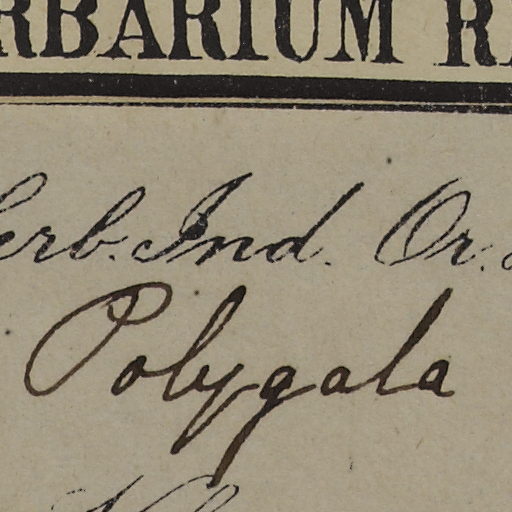 RBARIUM R
erb. Ind. Or.
Polygala